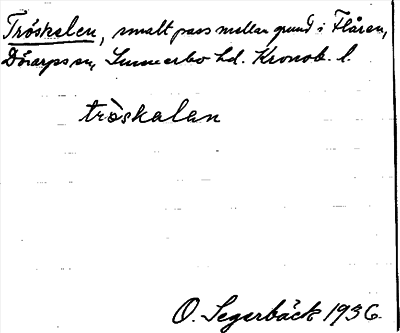 Tröskalen, smalt pass mellan grund i Flåren,
Dörarps sn, Sunnerbo hd. Kronob. l.
trȯ̀skalan
O. Segerbäck 1936.